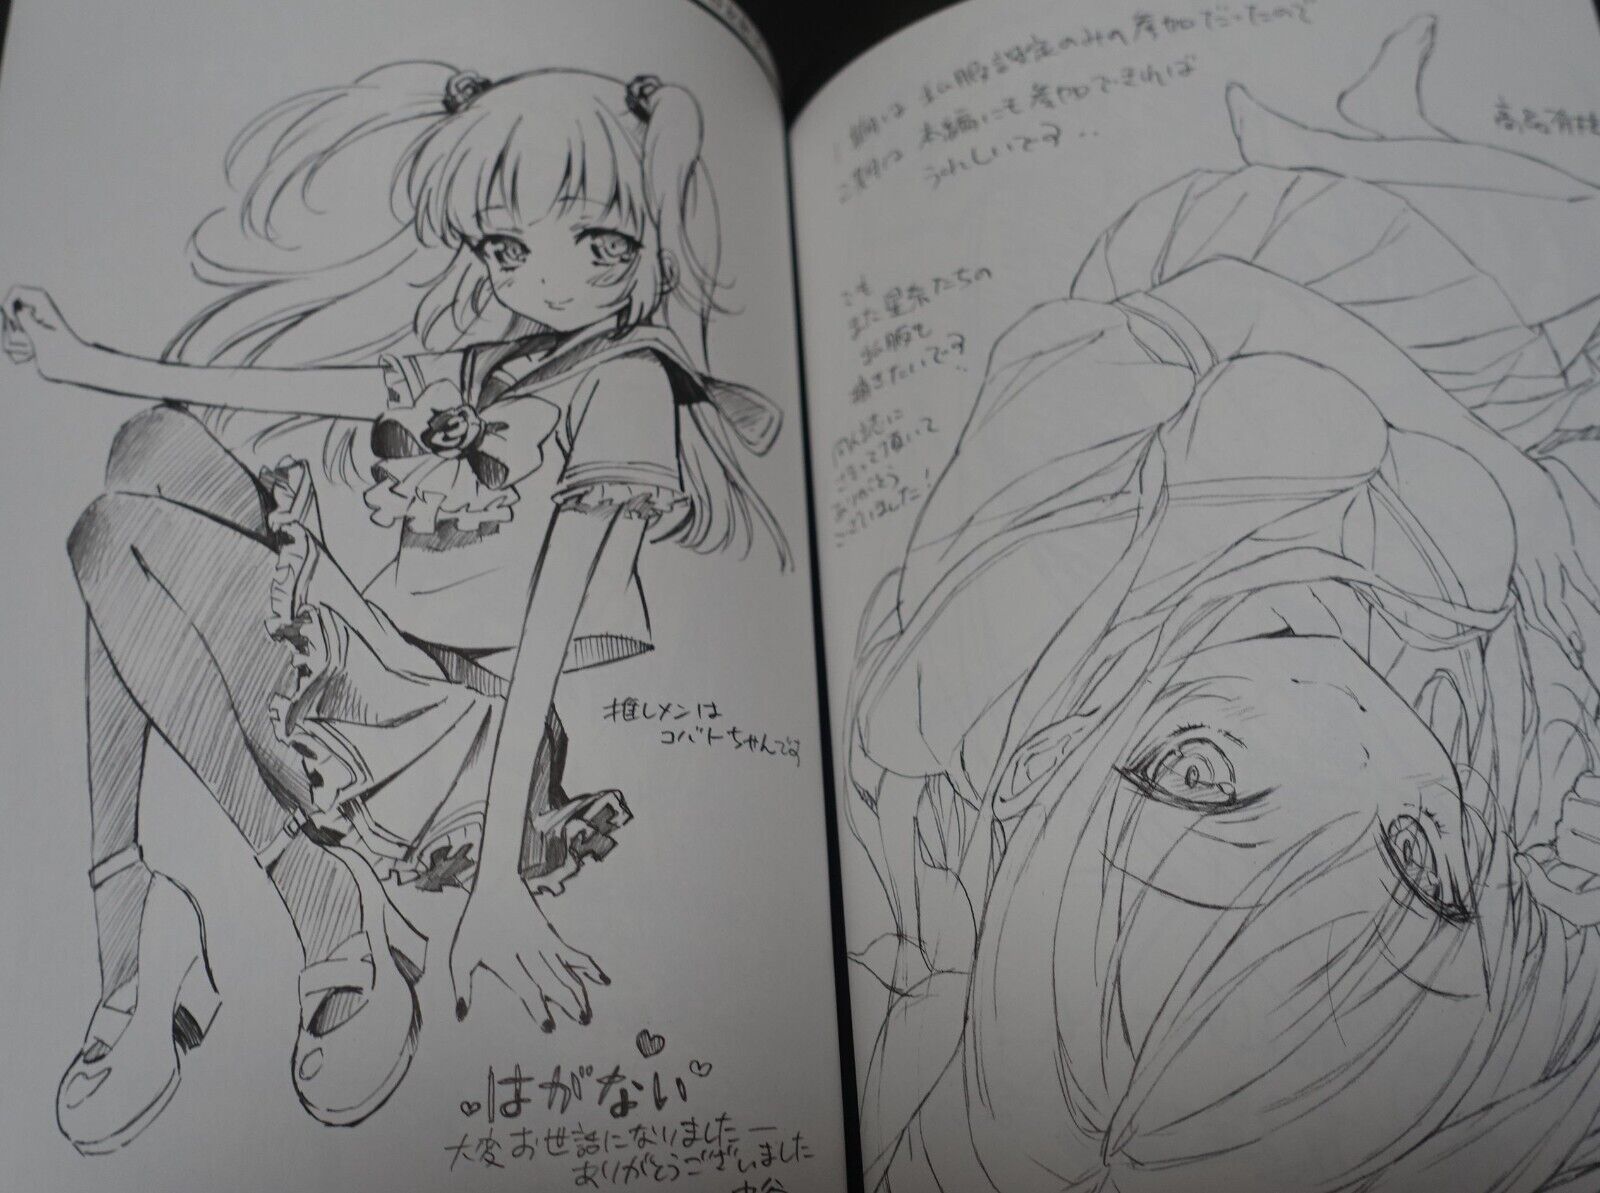 推しメンは
コバトちゃんです
はがない
大変お世話になりましたー
ありがとうございました
私服設定のみの参加だったので
本編にも参加できれば
うれしいです..
また星奈たちの
お服も
描きたいです..
同人誌に
させて頂いて
ありがとう
ございました!